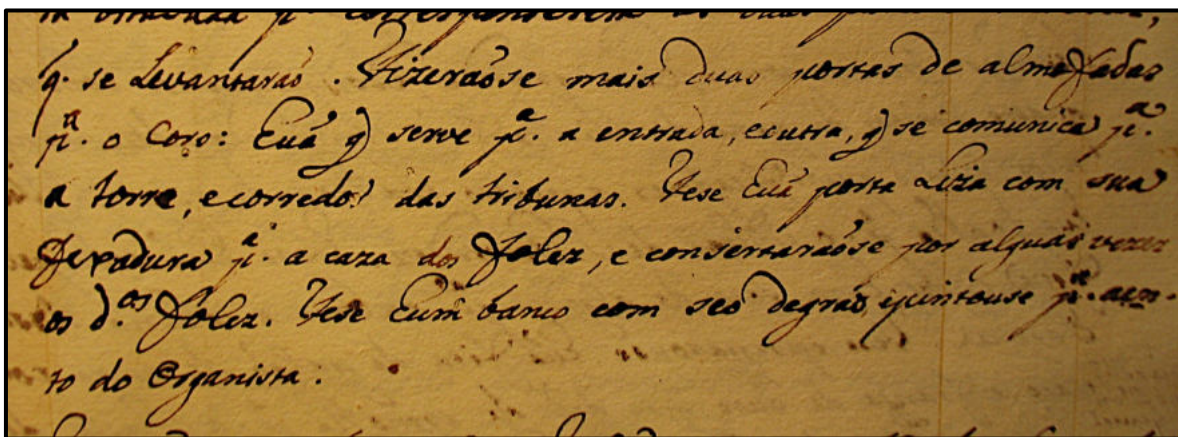 q. se Levantaraõ. Fizeraõse mais duas portas de almofadas
p.ª o Coro: huã q) serve p.ª a entrada, eoutra, q) se comunica p.ª
a torre, ecorredor das tribunas. Fese huã porta Liza com sua
fexadura p.ª a caza dos folez, e consertaraõse por alguãs vezes
os d.os folez. Fese hum banco com seo degráo, quintouse p.ª acen-
to do Organista.